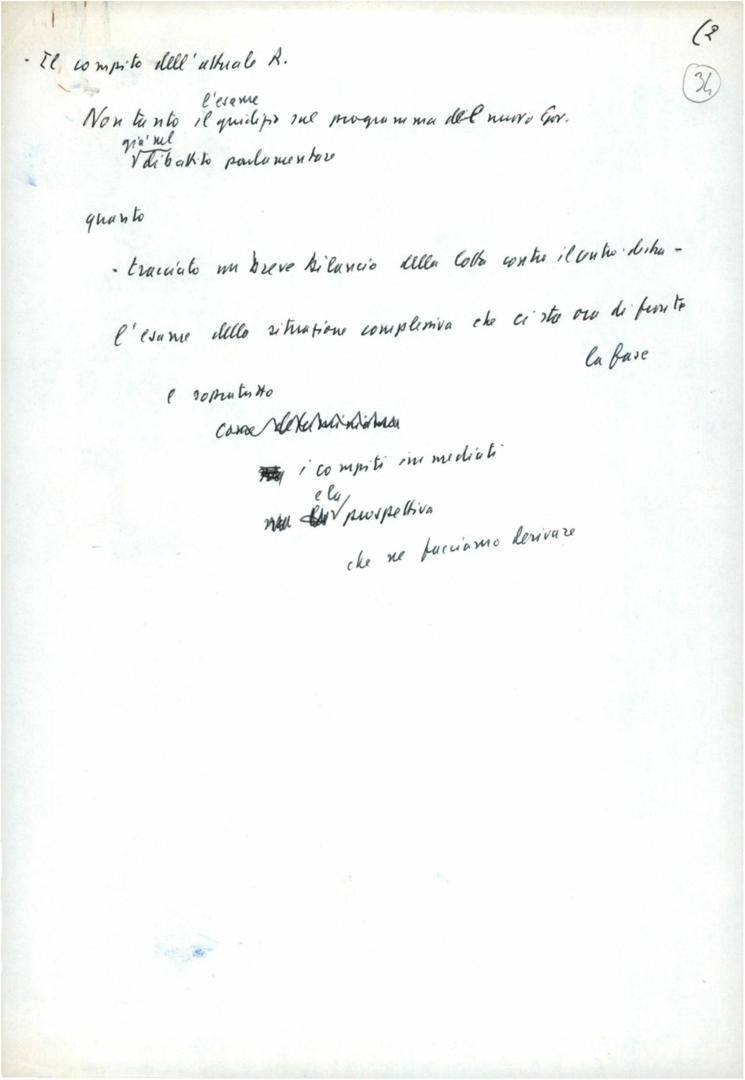 (2
34
· Il compito dell'attuale R.
l'esame
Non tanto il giudizio sul programma del nuovo Gov.
già nel
√ dibattito parlamentare
quanto
· tracciato un breve bilancio della lotta contro il centro-destra –
l'esame della situazione complessiva che ci sta ora di fronte
la fase
e soprattutto
come
i compiti immediati
e la
√ prospettiva
che ne facciamo derivare